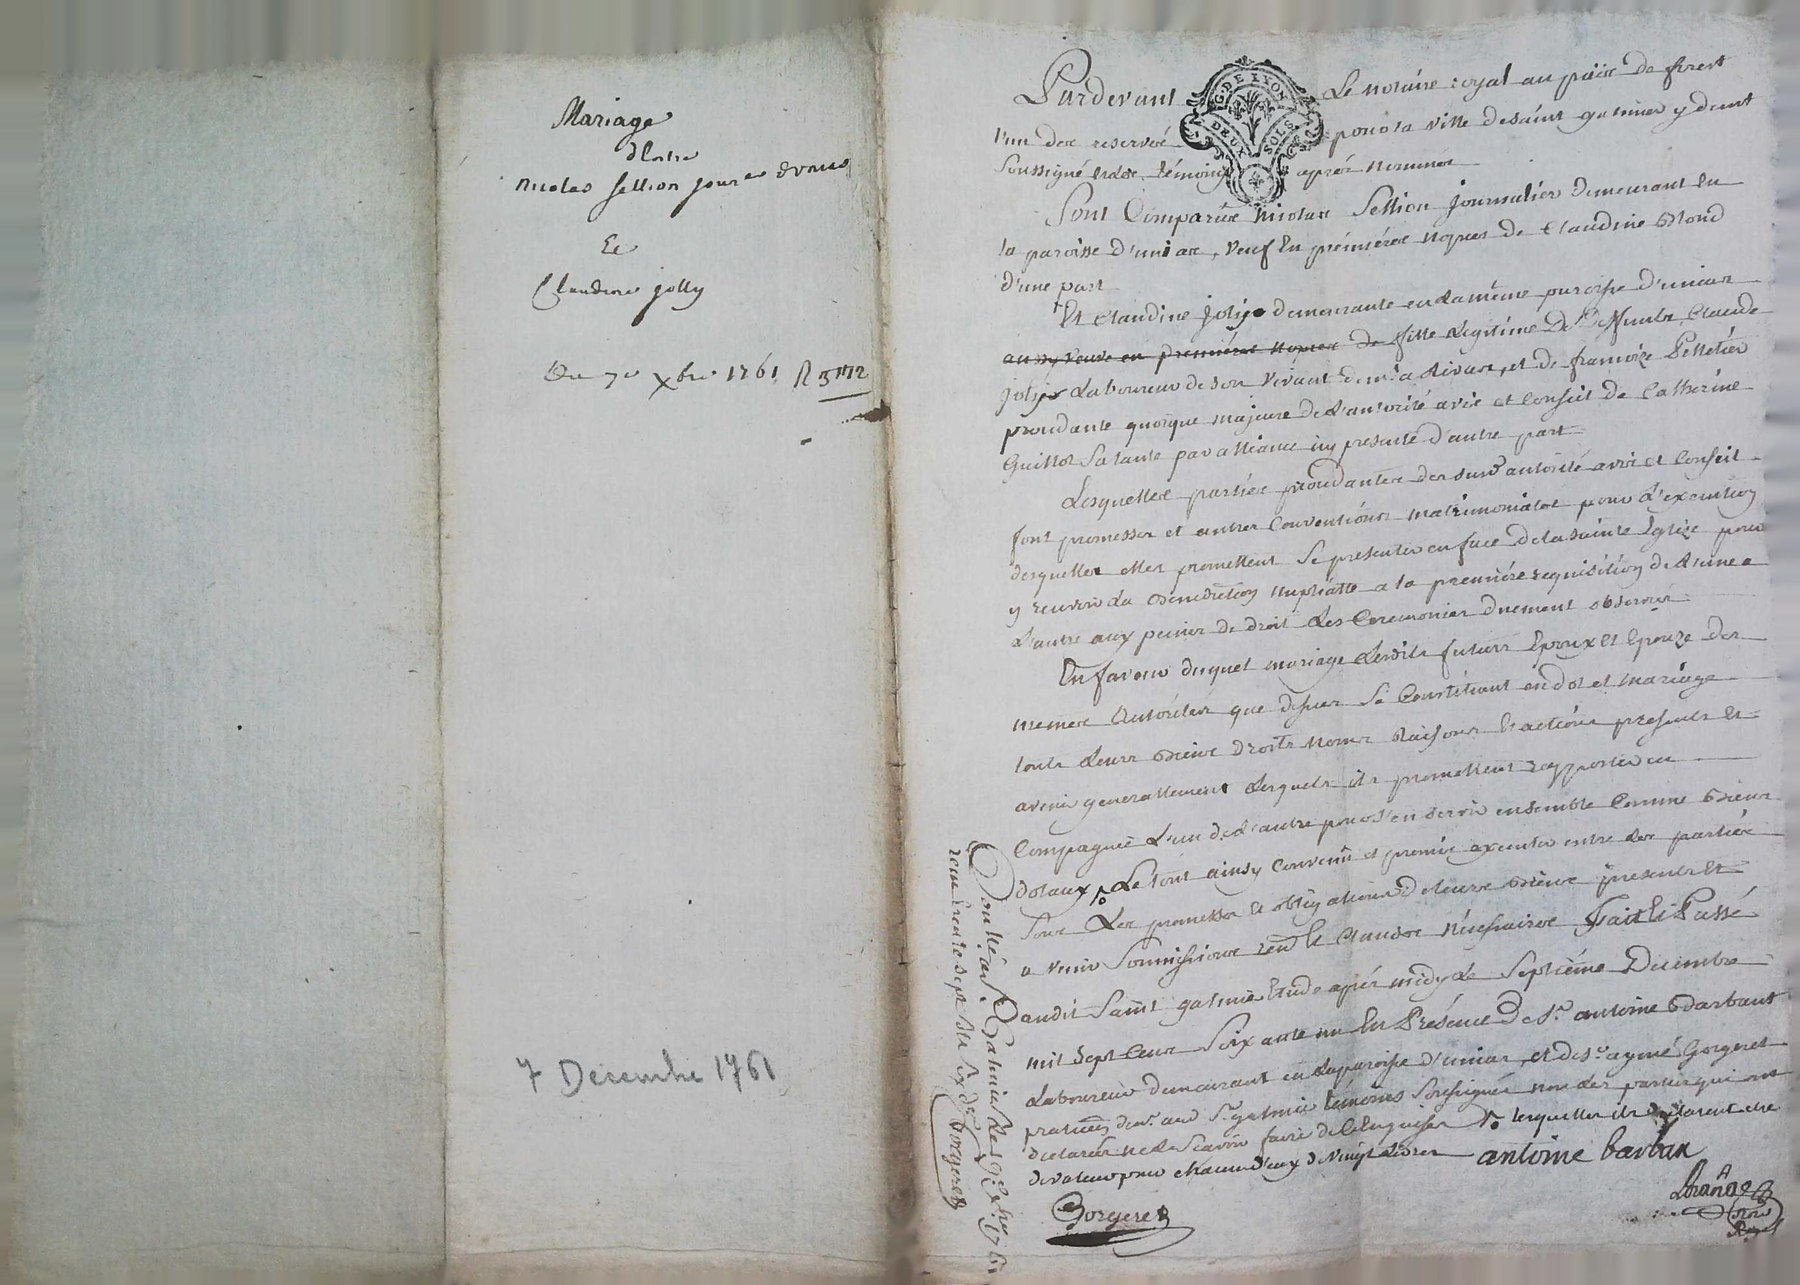 Mariage
d'Entre
Nicolas Sellion jour er d'unias
Et
Claudine Jolly
Du 7e xbre 1761
7 Decembre 1761
Pardevant Le notaire royal au païs de forest
l'un des reservés pour la ville de saint galmier y demt
soussigné et des témoins après nommés
G. DE LYON
DEUX SOLS
Sont Comparus Nicolas Sellion Journalier demeurant en
la paroisse d'unias, veuf En premières nopces de Claudine Blond
d'une part
Et Claudine Joly demeurante en la même paroisse d'unias
aussy veuve en premières nopces de fille Legitime de Claude
Joly Laboureur de son vivant demt a Rivas, et de françoize Pelletier
procedante quoique majeure de l'autorité avis et Conseil de Catherine
Guillot sa tante par alliance icy presente d'autre part
Lesquelles parties procedantes des susd autorité avis et Conseil
font promesses et autres Conventions matrimoniales pour L'execution
desquelles elles promettent se presenter en face de la sainte Eglize pour
y recevoir La Benediction nuptialle a la première requisition de L'une a
L'autre aux peines de droit Les Ceremonies duement observées
En faveur duquel mariage Lesdits futurs Epoux et Epouze des
memes autorités que dessus se Constituent en dot et mariage
touts Leurs Biens Droits noms Raisons et actions presents et
avenir generallement Lesquels ils promettent rapporter en
Compagnie L'un de L'autre pour s'en servir ensemble Comme Biens
dotaux Le tout ainsy Convenu et promis executer entre Les parties
sous Les promesses et obligations de leurs Biens presents et
a venir soumissions rent et Clauses Nécessaires Fait et Passé
audit Saint galmier Etude après midy Le Septième Decembre
mil Sept Cent Soixante un En Présence de Sr antoine Barbant
Laboureur demeurant en La paroisse d'unias, et de sr aymé Gorgeret
praticien demt aud St galmier témoins soussignés non Les parties qui ont
declarés ne Le sçavoir faire de Ce Enquises lesquelles ils declarent etre
de valeur pour chacun d'eux de vingt Livres
antoine barban
Gorgeret
Conllé a St Galmier Le 9e Xbre 1761
reçu trente sept sols six ds Gorgeret